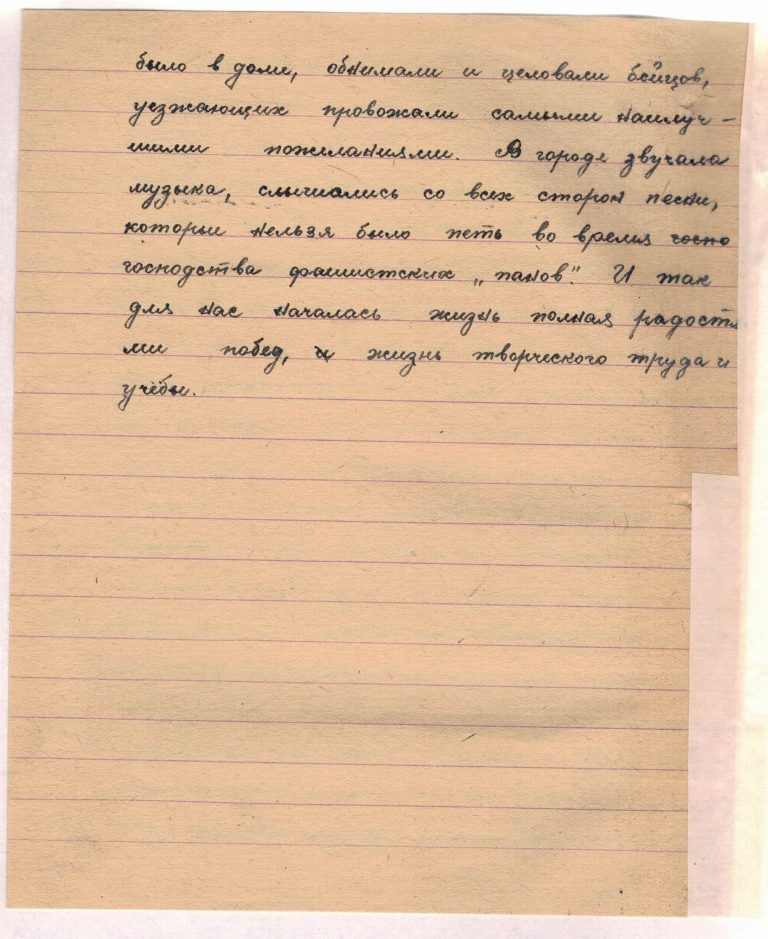 было в доме, обнимали и целовали бойцов,
уезжающих провожали самыми наилуч-
шими пожеланиями. В городе звучала
музыка, слышались со всех сторон песни,
которыи нельзя было петь во время госпо
господства фашистских „панов". И так
для нас началась жизнь полная радостя
ми побед, и жизнь творческого труда и
учёбы.